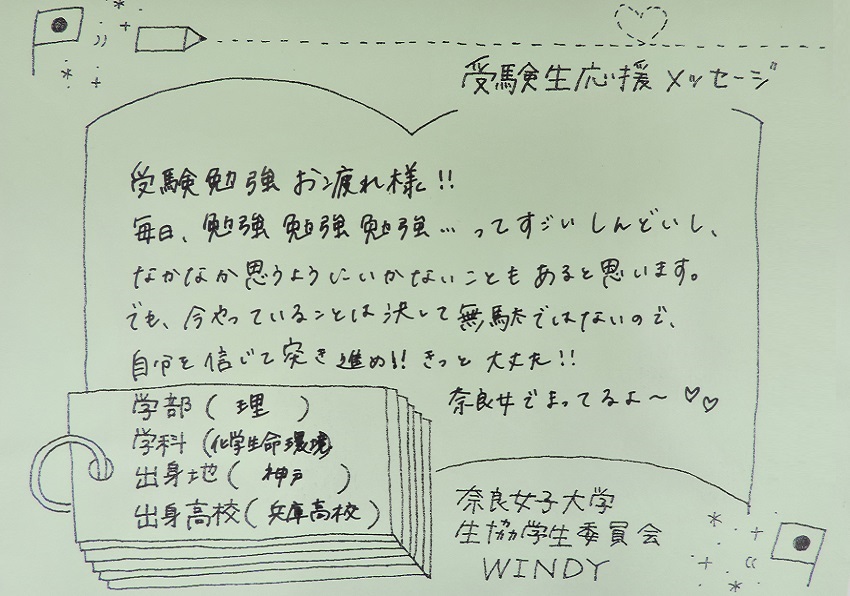 受験生応援メッセージ
受験勉強お疲れ様!!
毎日、勉強勉強勉強…ってすごいしんどいし、
なかなか思うようにいかないこともあると思います。
でも、今やっていることは決して無駄ではないので、
自分を信じて突き進め!! きっと大丈夫!!
奈良女でまってるよ〜♡♡
学部(理)
学科(化学生命環境)
出身地(神戸)
出身高校(兵庫高校)
奈良女子大学
生協学生委員会
WINDY